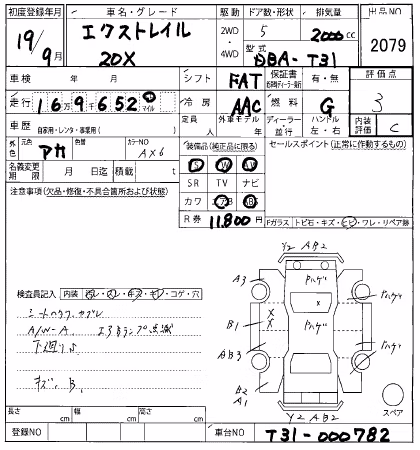 初度登録年月 車名・グレード 駆動 ドア数・形状 排気量 出品NO
19/9月 エクストレイル 20X 2WD・4WD 5 2000cc 2079
型式 DBA-T31
車検 年 月 シフト FAT 保証書 有・無 評価点 3
走行 16万9千652 マイル 冷房 AAC 燃料 G
車歴 自家用・レンタ・事業用( ) 定員 人 外車モデル 年 ディーラー・並行 ハンドル 左・右 内装評価 C
外色 元色 アカ 色替 カラーNO AX6
装備品(純正品に限る) セールスポイント(正常に作動するもの)
名義変更期限 月 日迄 積載 t
S W A
SR TV ナビ
カワ エアB AB
R券 11,800円
注意事項(欠品・修復・不具合箇所および状態)
Fガラス トビ石・キズ・ヒビ・ワレ・リペア跡
検査員記入 内装 コゲ・穴
シートハクワ、スレ
A/W-A エアBランプ点滅
下廻りS
キズ、B.
Y2 AB2
A3
B1
X
X
X
AB3
B2
A1
Pハゲ
Pハゲ
Pハゲ
Pハゲ
Y2 AB2
スペア
長さ cm 幅 cm 高さ cm
登録NO 車台NO T31-000782